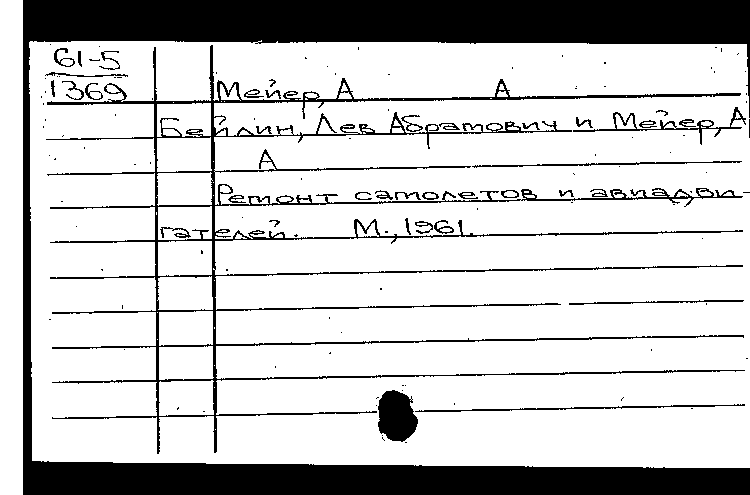 61-5
1369
Мейер, А А
Бейлин, Лев Абрамович и Мейер, А
А
Ремонт самолетов и авиадви-
гателей. М., 1961.